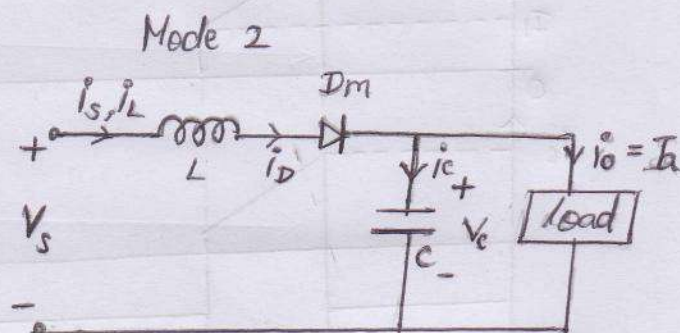 Mode 2
is, iL
Dm
+
L
iD
ic
+
io = Ia
Vs
C
Vc
Load
-
-